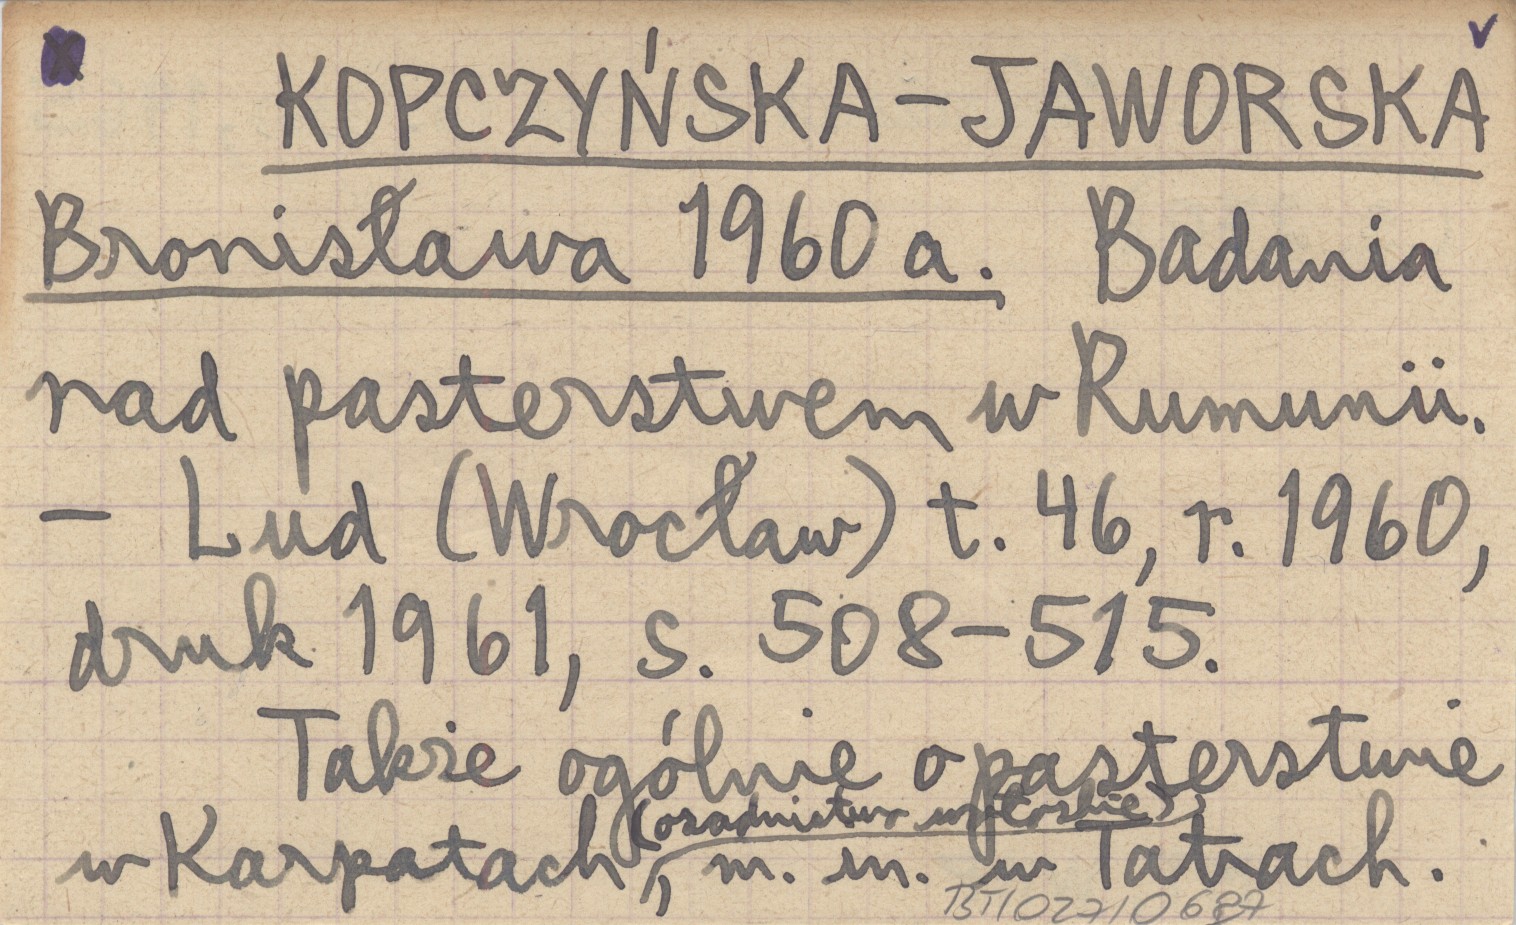 KOPCZYŃSKA-JAWORSKA
Bronisława 1960 a. Badania
nad pasterstwem w Rumunii.
- Lud (Wrocław) t. 46, r. 1960,
druk 1961, s. 508-515.
Także ogólnie o pasterstwie
(osadnictwo wołoskie)
w Karpatach, m. in. w Tatrach.
BT/027/0687